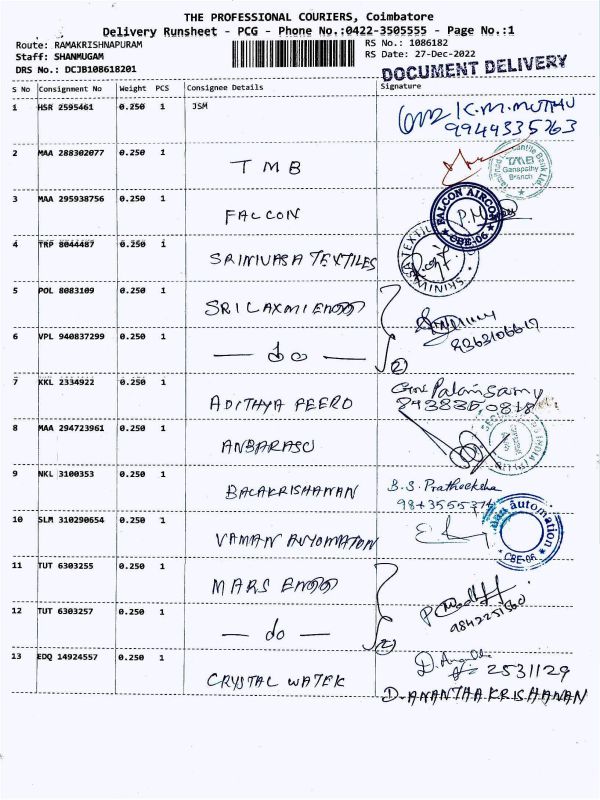 THE PROFESSIONAL COURIERS, Coimbatore
Delivery Runsheet - PCG - Phone No.:0422-3505555 - Page No.:1
Route: RAMAKRISHNAPURAM
Staff: SHANMUGAM
DRS No.: DCJB108618201
RS No.: 1086182
RS Date: 27-Dec-2022
DOCUMENT DELIVERY
S No Consignment No Weight PCS Consignee Details Signature
1 HSR 2595461 0.250 1 JSM K.M.MUTHU
9944335763
2 MAA 288302077 0.250 1 TMB
TMB Ganapathy Branch
3 MAA 295938756 0.250 1 FALCON
FALCON AIRCON CBE-06
4 TRP 8044487 0.250 1 SRINIVASA TEXTILES
SRINIVASA TEXTIL
5 POL 8083109 0.250 1 SRI LAXMI
6 VPL 940837299 0.250 1 do 2
7 KKL 2334922 0.250 1 ADITHYA FEERO
Palanisamy
8 MAA 294723961 0.250 1 ANBARASU
9 NKL 3100353 0.250 1 BALAKRISHANAN B.S. Pratheeksha
10 SLM 310290654 0.250 1 VAMAN AUYOMATON
automation CBE-06
11 TUT 6303255 0.250 1 MARS
12 TUT 6303257 0.250 1 do 2
9842251560
13 EDQ 14924557 0.250 1 CRYSTAL WATER
2531129
D.ANANTHAKRISHANAN